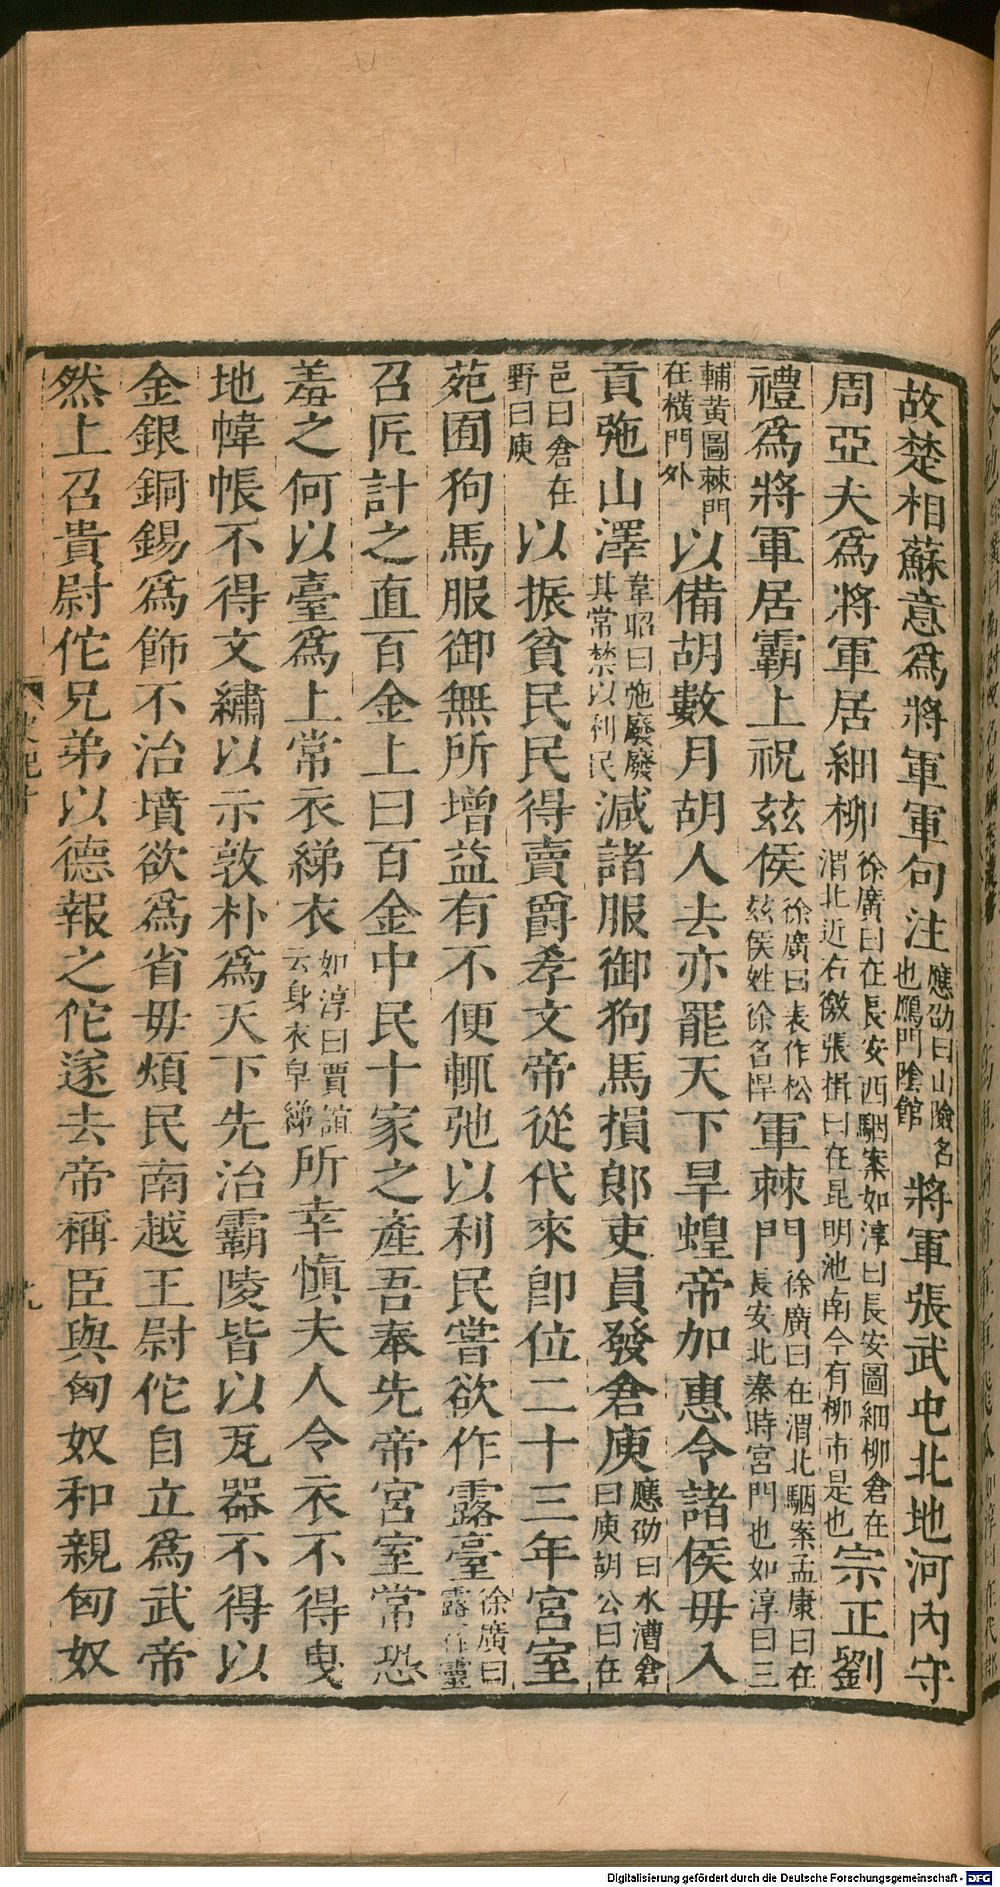 故楚相蘇意爲將軍軍句注應劭曰山險名也鴈門陰館將軍張武屯北地河內守
周亞夫爲將軍居細柳徐廣曰在長安西駰案如淳曰長安圖細柳倉在渭北近石徼張揖曰在昆明池南今有柳市是也宗正劉
禮爲將軍居霸上祝玆侯徐廣曰表作松玆侯姓徐名悍軍棘門徐廣曰在渭北駰案孟康曰在長安北秦時宮門也如淳曰三
輔黃圖棘門在橫門外以備胡數月胡人去亦罷天下旱蝗帝加惠令諸侯毋入
貢弛山澤韋昭曰弛廢廢其常禁以利民減諸服御狗馬損郞吏員發倉庾應劭曰水漕倉曰庾胡公曰在
邑曰倉在野曰庾以振貧民民得賣爵孝文帝從代來卽位二十三年宮室
苑囿狗馬服御無所增益有不便輒弛以利民嘗欲作露臺徐廣曰露作靈
召匠計之直百金上曰百金中民十家之產吾奉先帝宮室常恐
羞之何以臺爲上常衣綈衣如淳曰賈誼云身衣皁綈所幸愼夫人令衣不得曳
地幃帳不得文繡以示敦朴爲天下先治霸陵皆以瓦器不得以
金銀銅錫爲飾不治墳欲爲省毋煩民南越王尉佗自立爲武帝
然上召貴尉佗兄弟以德報之佗遂去帝稱臣與匈奴和親匈奴
史記十
九
Digitalisierung gefördert durch die Deutsche Forschungsgemeinschaft - DFG